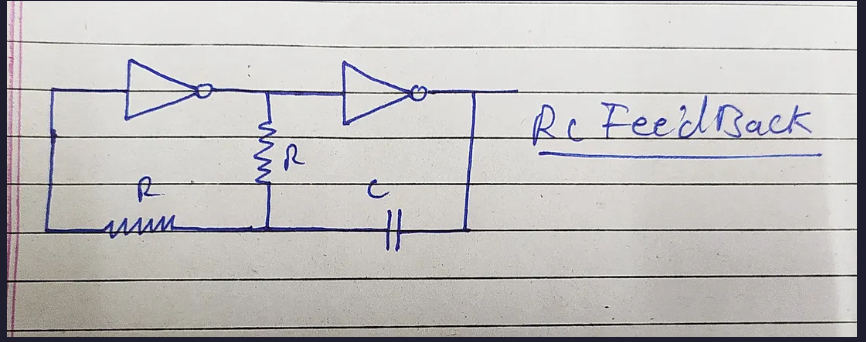 Rc FeedBack
R
R
C